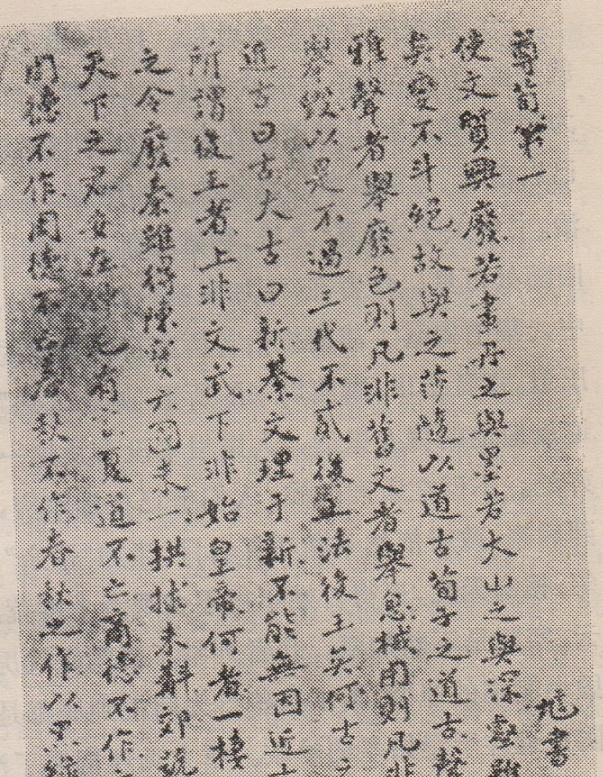 尊荀第一 訄書
使文質興廢若畫丹之與墨若大山之與深壑雖
矣變不斗絕故與之莎隨以道古荀子之道古聲
雅聲者舉廢色則凡非舊文者舉息械用則凡非
舉毀以是不過三代不貳後王法後王矣何古之
近古曰古大古曰新綦文理于新不能無因近古
所謂後王者上非文武下非始皇帝何者一棲
之令廢秦雖得陳寶六國未一拱揖未辭郊號
天下之君安在仲尼有言夏道不亡商德不作
周德不作周德不亡春秋不作春秋之作以黑綠